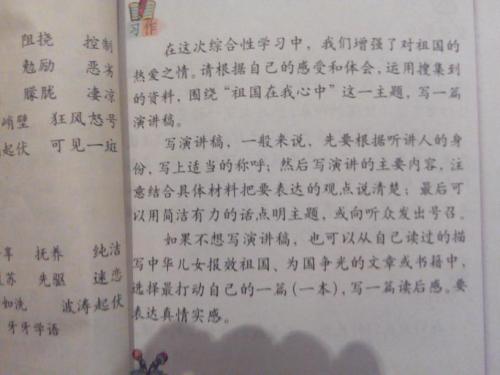 习作
在这次综合性学习中，我们增强了对祖国的
热爱之情。请根据自己的感受和体会，运用搜集到
的资料，围绕“祖国在我心中”这一主题，写一篇
演讲稿。
写演讲稿，一般来说，先要根据听讲人的身
份，写上适当的称呼；然后写演讲的主要内容，注
意结合具体材料把要表达的观点说清楚；最后可
以用简洁有力的话点明主题，或向听众发出号召。
如果不想写演讲稿，也可以从自己读过的描
写中华儿女报效祖国、为国争光的文章或书籍中，
选择最打动自己的一篇（一本），写一篇读后感。要
表达真情实感。
阻挠 控制
勉励 恶劣
朦胧 凄凉
峭壁 狂风怒号
起伏 可见一斑
抚养 纯洁
苏 先驱 迷恋
如洗 波涛起伏
牙牙学语